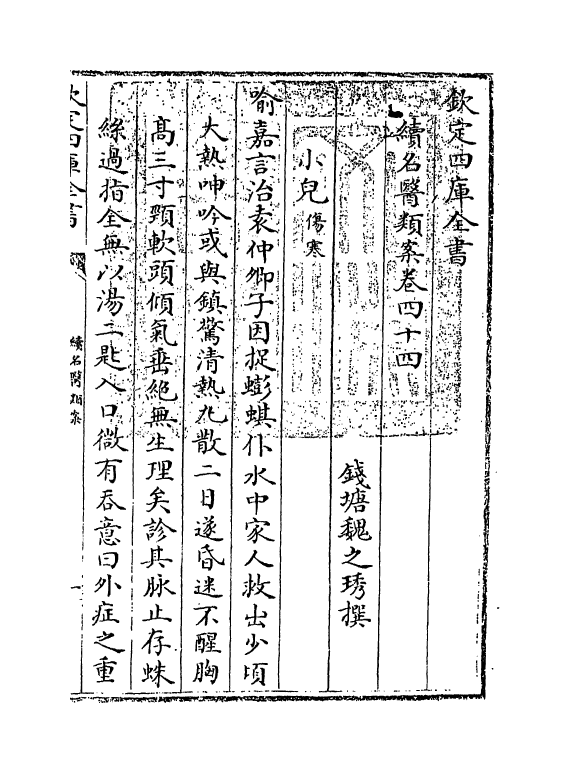 欽定四庫全書
續名醫類案卷四十四
錢塘魏之琇撰
小兒傷寒
喻嘉言治袁仲卿子因捉蟛蜞仆水中家人救出少頃
大熱呻吟或與鎮驚清熱丸散二日遂昏迷不醒胸
高三寸頸軟頭傾氣垂絶無生理矣診其脉止存蛛
絲過指全無以湯二匙入口微有吞意曰外症之重
欽定四庫全書
續名醫類案
一